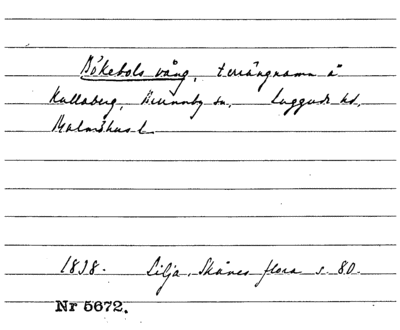 Bökebols vång, terrängnamn å
Kullaberg, Brunnby sn. Luggude hd.
Malmöhus l.
1838. Lilja, Skånes flora s. 80.
Nr 5672.